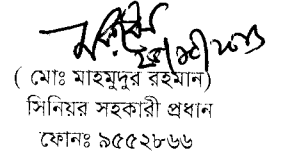 ( মোঃ মাহমুদুর রহমান)
সিনিয়র সহকারী প্রধান
ফোনঃ ৯৫৫২৮৬৬